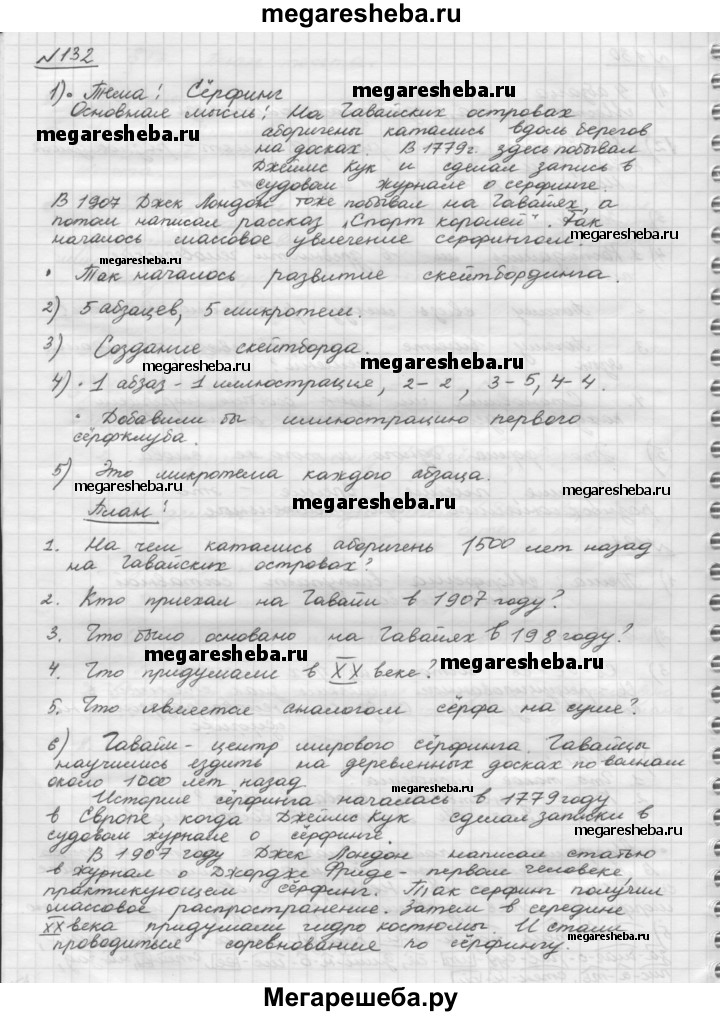 megaresheba.ru
№132
1). Тема: Сёрфинг
megaresheba.ru
Основная мысль: На Гавайских островах
megaresheba.ru
аборигены катались вдоль берегов
на досках. В 1779г. здесь побывал
Джеймс Кук и сделал запись в
судовом журнале о серфинге.
В 1907 Джек Лондон тоже побывал на Гавайях, а
megaresheba.ru
потом написал рассказ „Спорт королей". Так
началось массовое увлечение серфингом.
megaresheba.ru
megaresheba.ru
• Так началось развитие скейтбординга.
2) 5 абзацев, 5 микротем.
3) Создание скейтборда.
megaresheba.ru
megaresheba.ru
4) • 1 абзаз - 1 иллюстрация, 2 - 2, 3 - 5, 4 - 4.
• Добавили бы иллюстрацию первого
сёрфклуба.
5) Это микротема каждого абзаца.
megaresheba.ru
megaresheba.ru
megaresheba.ru
План:
1. На чем катались аборигень 1500 лет назад
на Гавайских островах?
2. Кто приехал на Гавайи в 1907 году?
3. Что было основано на Гавайях в 198 году?
megaresheba.ru
megaresheba.ru
4. Что придумали в XX веке?
5. Что является аналогом сёрфа на суше?
6) Гавайи - центр мирового сёрфинга. Гавайцы
научились ездить на деревленных досках по волнам
около 1000 лет назад
megaresheba.ru
История сёрфинга началась в 1779 году
в Европе, когда Джеймс Кук сделал записки в
megaresheba.ru
судовом журнале о сёрфинге.
В 1907 году Джек Лондон написал статью
в журнал о Джордже Фриде - первом человеке,
практикующем сёрфинг. Так серфинг получил
массовое распространение. Затем в середине
XX века придумали гидро костюмы. И стали
проводиться соревнования по сёрфингу.
megaresheba.ru
megaresheba.ru
Мегарешеба.ру